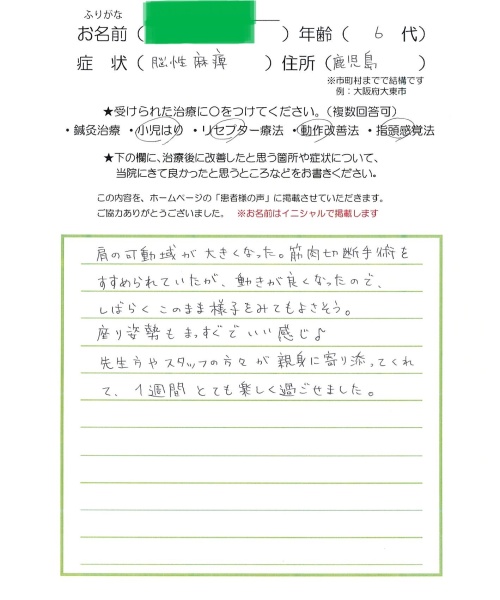 ふりがな
お名前（　　　）年齢（　6　代）
症　状（脳性麻痺　）住所（鹿児島　）
※市町村までで結構です
例：大阪府大東市
★受けられた治療に〇をつけてください。（複数回答可）
・鍼灸治療 ・小児はり ・リセプター療法 ・動作改善法 ・指頭感覚法
★下の欄に、治療後に改善したと思う箇所や症状について、
当院にきて良かったと思うところなどをお書きください。
この内容を、ホームページの「患者様の声」に掲載させていただきます。
ご協力ありがとうございました。　※お名前はイニシャルで掲載します
肩の可動域が大きくなった。筋肉切断手術を
すすめられていたが、動きが良くなったので、
しばらくこのまま様子をみてもよさそう。
座り姿勢もまっすぐでいい感じ♪
先生方やスタッフの方々が親身に寄り添ってくれ
て、1週間とても楽しく過ごせました。